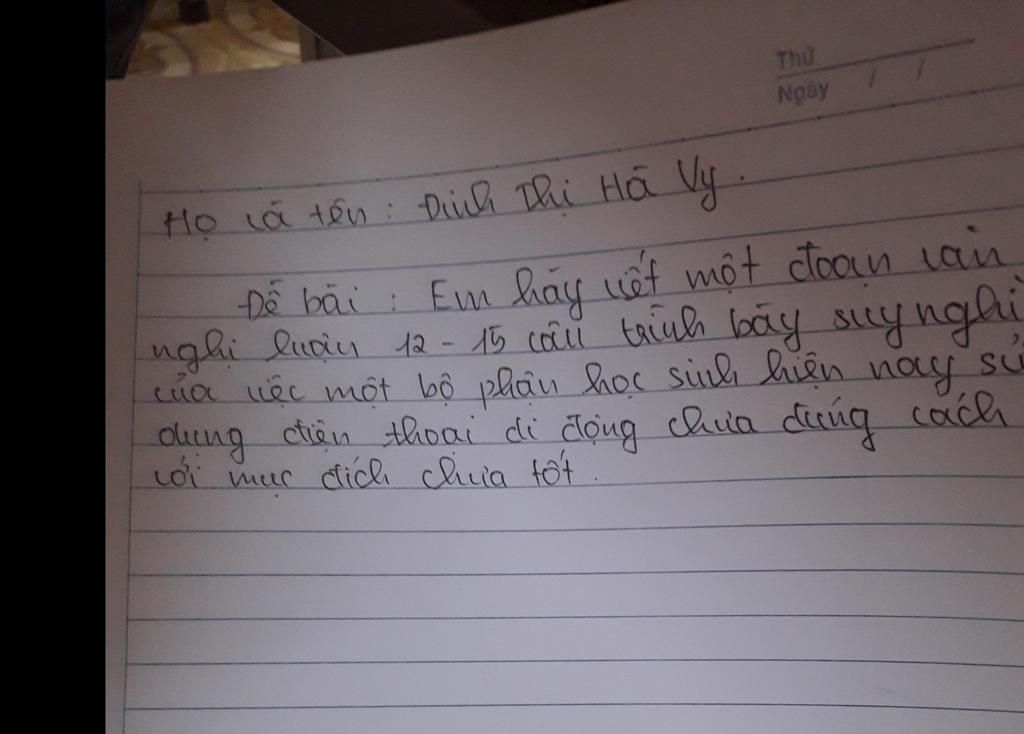 Thứ
Ngày / /
Họ và tên : Đinh Thị Hà Vy .
Đề bài : Em hãy viết một đoạn văn
nghị luận 12 - 15 câu trình bày suy nghĩ
của việc một bộ phận học sinh hiện nay sử
dụng điện thoại di động chưa đúng cách
với mục đích chưa tốt .